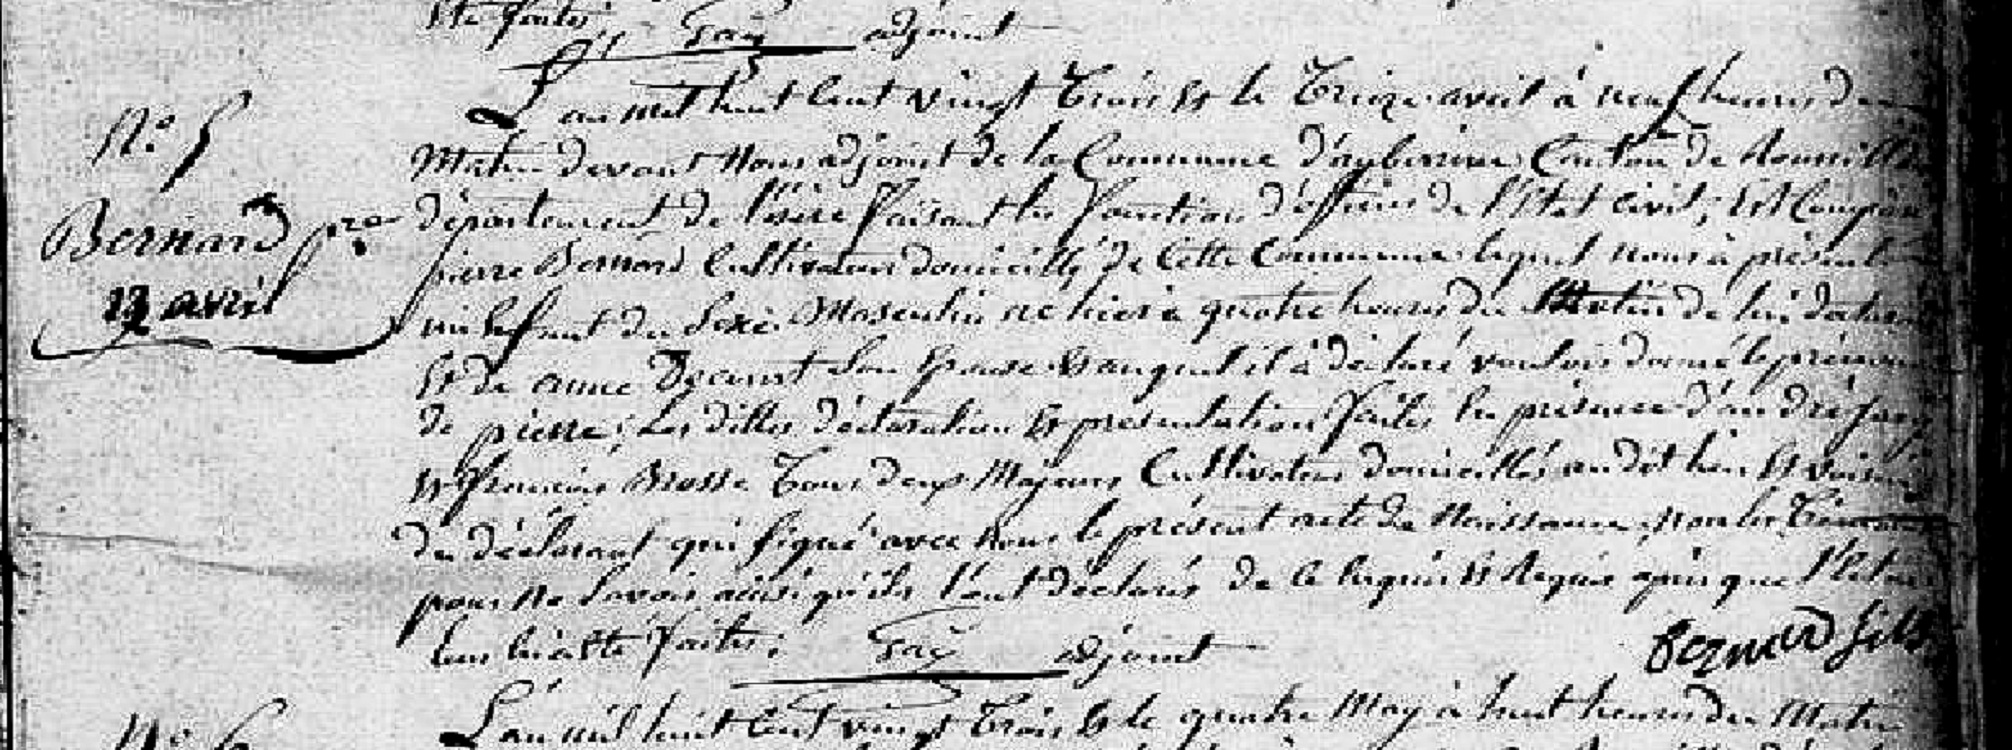 été faites; Gay adjoint
N.º 5
Bernard p.re
12 avril
L'an mil huit cent vingt trois et le treize avril à neuf heures du
Matin devant Nous adjoint de la Commune d'auberive Canton de Roussillon
département de l'isère faisant les fonctions d'officier de l'Etat Civil; Est Comparu
pierre Bernard Cultivateur domicillié de Cette Commune lequel nous à présenté
un Enfant du Sexe Masculin né hier à quatre heures du Matin de lui déclarant
Et de anne son Epouse Et auquel il à déclaré vouloir donné le prénom
de pierre; Les dittes déclaration Et présentation faites En présence d'andré
Et françois Brosse Tous deux Majeurs Cultivateurs domicilliés au dit lieu Et voisins
du déclarant qui signé avec Nous le présent acte de Naissance, non les Témoins
pour Ne Savoir ainsi qu'ils l'ont déclarés de ce Enquis Et Requis après que
leur En a Eté faite; Gay adjoint
Bernard fils
N.º 6
L'an mil huit Cent vingt trois Et le quatre May à huit heures du Matin